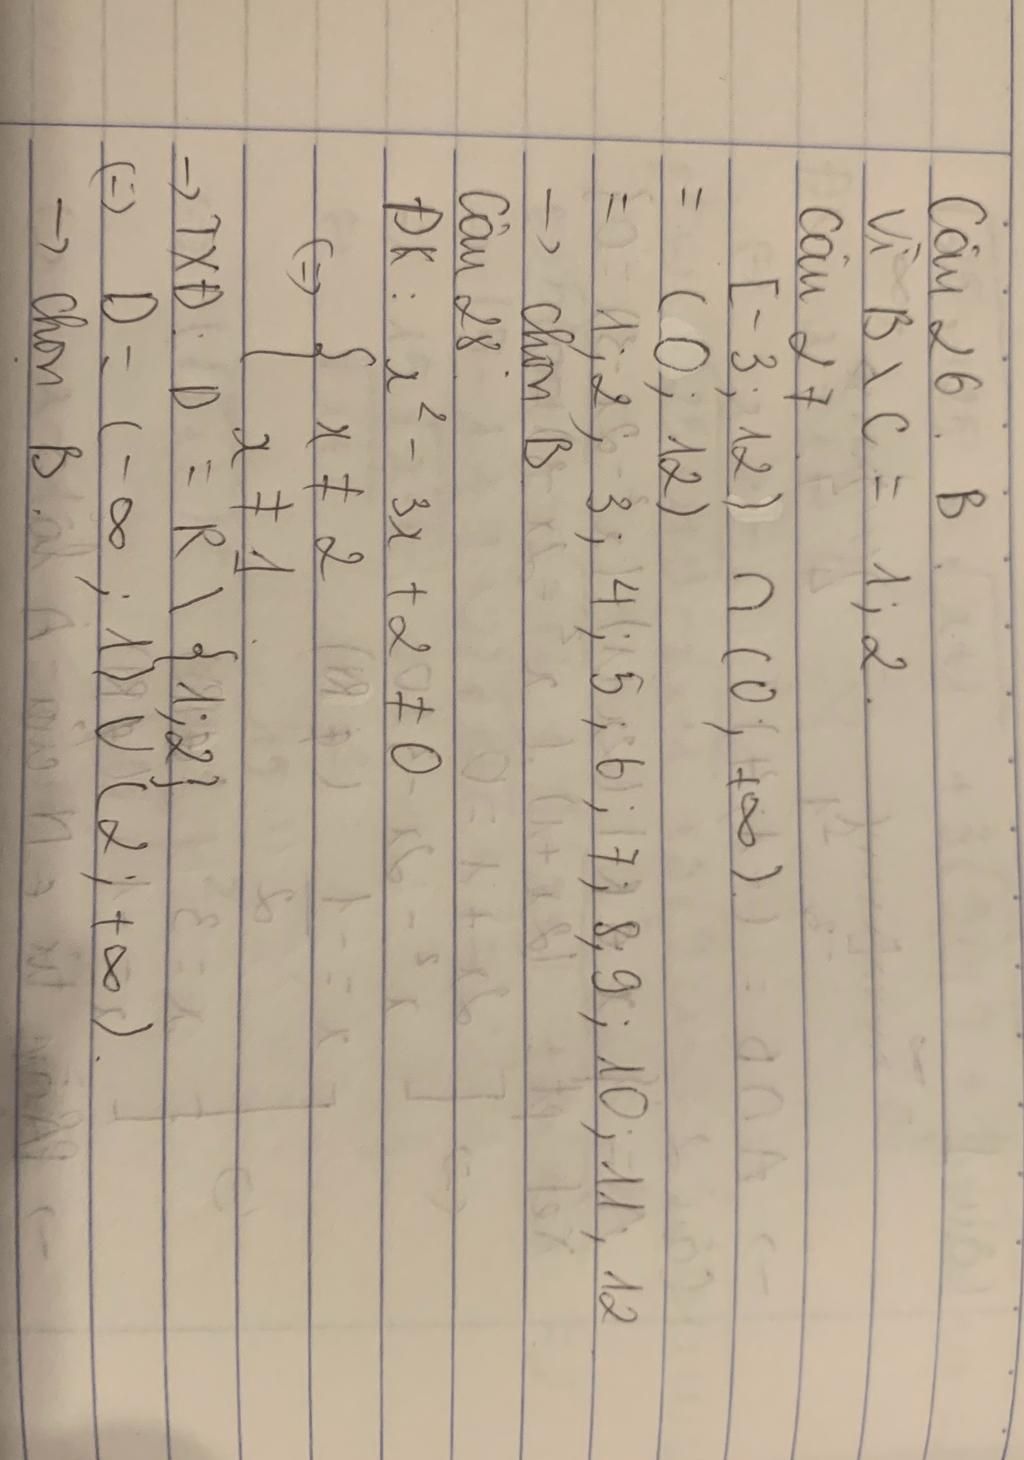 Câu 26. B.
Vì B \ C = 1; 2.
Câu 27
[-3; 12) ∩ (0; +∞)
= (0; 12)
= 1; 2; 3; 4; 5; 6; 7; 8; 9; 10; 11; 12
→ Chọn B
Câu 28.
ĐK: x² - 3x + 2 ≠ 0
(=) { x ≠ 2
{ x ≠ 1.
→ TXĐ: D = R \ {1; 2}
(=) D = (-∞; 1) ∪ (2; +∞).
→ Chọn B.